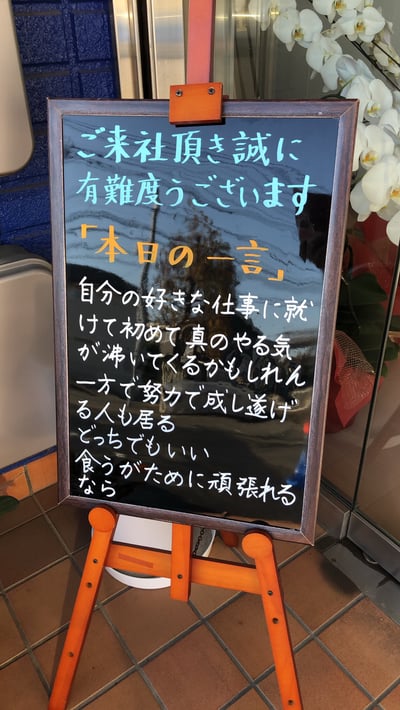 ご来社頂き誠に
有難度うございます
「本日の一言」
自分の好きな仕事に就
けて初めて真のやる気
が沸いてくるかもしれん
一方で努力で成し遂げ
る人も居る
どっちでもいい
食うがために頑張れる
なら